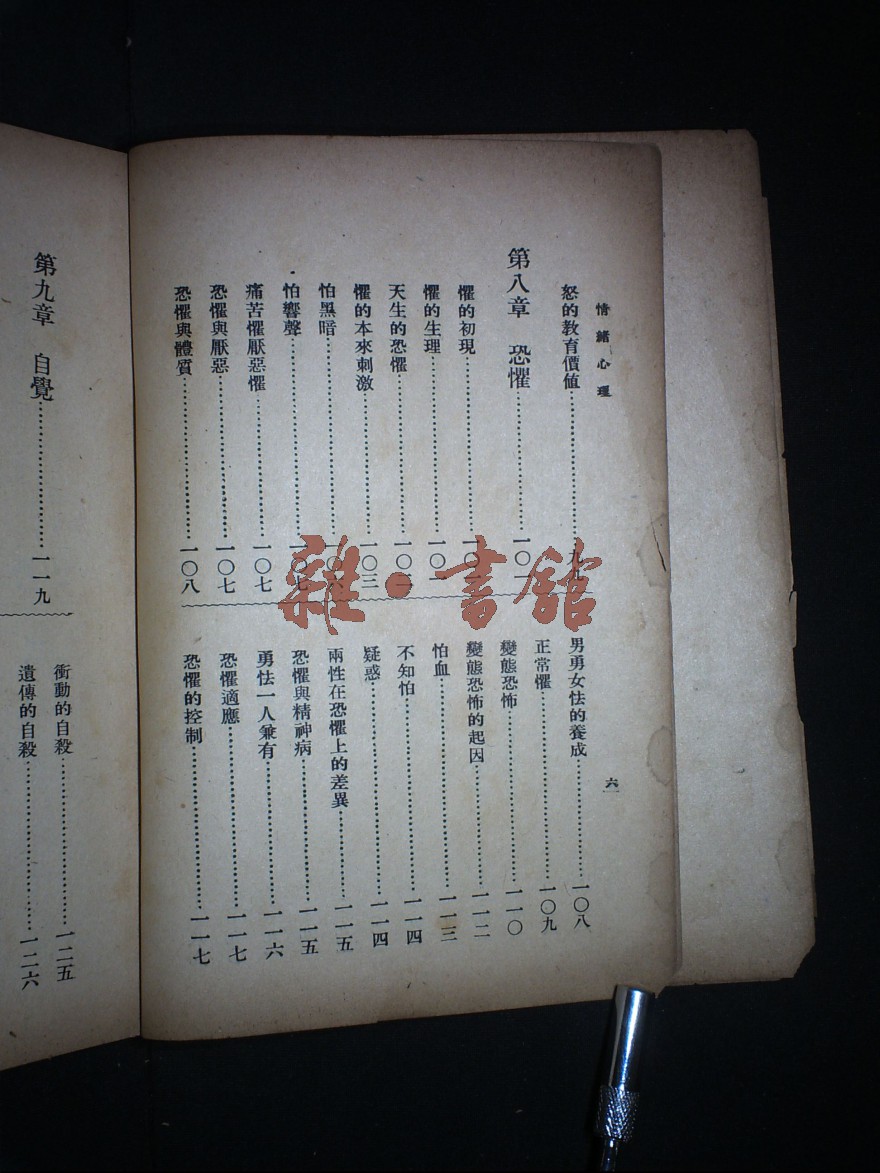 情緒心理
六
怒的教育價値………九九
第八章 恐懼………一〇一
懼的初現………一〇一
懼的生理………一〇一
天生的恐懼………一〇二
懼的本來刺激………一〇三
怕黑暗………一〇六
怕響聲………一〇七
痛苦懼厭惡懼………一〇七
恐懼與厭惡………一〇七
恐懼與體質………一〇八
男勇女怯的養成………一〇八
正常懼………一〇九
變態恐怖………一一〇
變態恐怖的起因………一一二
怕血………一一三
不知怕………一一四
疑惑………一一四
兩性在恐懼上的差異………一一五
恐懼與精神病………一一五
勇怯一人兼有………一一六
恐懼適應………一一七
恐懼的控制………一一七
第九章 自覺………一一九
衝動的自殺………一二五
遺傳的自殺………一二六
雜·書館